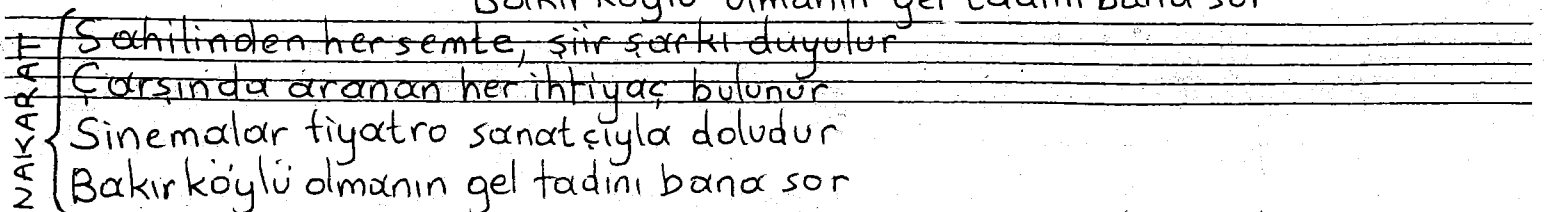 Bakırköylü olmanın gel tadını bana sor
NAKARAT
Sahilinden her semte, şiir şarkı duyulur
Çarşında aranan her ihtiyaç bulunur
Sinemalar tiyatro sanatçıyla doludur
Bakırköylü olmanın gel tadını bana sor